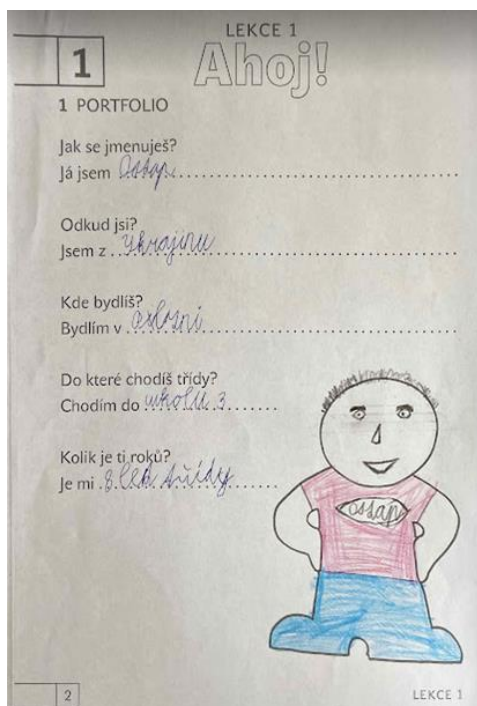 LEKCE 1
1
Ahoj!
1 PORTFOLIO
Jak se jmenuješ?
Já jsem Ostap
Odkud jsi?
Jsem z ykrajinu
Kde bydlíš?
Bydlím v
Do které chodíš třídy?
Chodím do 3
Kolik je ti roků?
Je mi 8 let třídy
ostap
2
LEKCE 1